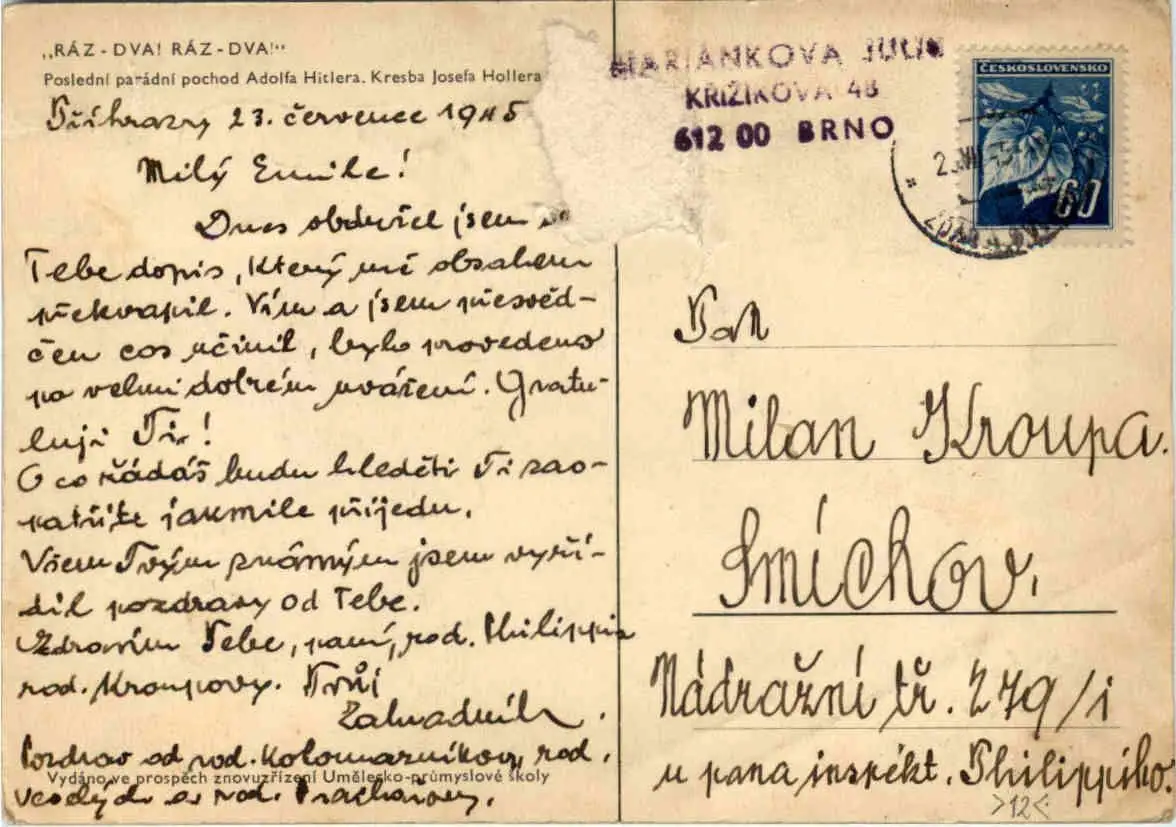 „RÁZ - DVA! RÁZ - DVA!“
Poslední parádní pochod Adolfa Hitlera. Kresba Josefa Hollera
Příhrazy 23. července 1945
Milý Emile!
Dnes obdržel jsem
Tebe dopis, který mě obsahem
překvapil. Vím a jsem přesvěd-
čen cos učinil, bylo provedeno
po velmi dobrém uvážení. Gratu-
luji Ti!
O co žádáš budu hleděti Ti zao-
patřite jakmile přijedu.
Všem Tvým známým jsem vyří-
dil pozdravy od Tebe.
Zdravím Tebe, paní, rod. Philippis
rod. Kroupovy. Tvůj
Zahradník.
Pozdrav od rod. rod.
Vydáno ve prospěch znovuzřízení Umělecko-průmyslové školy
a rod.
MARIÁNKOVA JULIE
KŘIŽÍKOVA 48
612 00 BRNO
ČESKOSLOVENSKO
60
Pan
Milan Kroupa.
Smíchov.
Nádražní tř. 279/i
u pana inspékt. Philippiho.
>12<